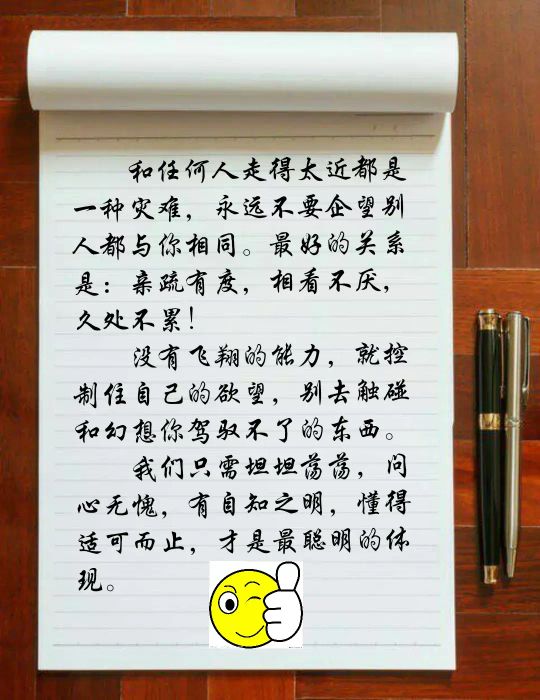 和任何人走得太近都是
一种灾难，永远不要企望别
人都与你相同。最好的关系
是：亲疏有度，相看不厌，
久处不累！
没有飞翔的能力，就控
制住自己的欲望，别去触碰
和幻想你驾驭不了的东西。
我们只需坦坦荡荡，问
心无愧，有自知之明，懂得
适可而止，才是最聪明的体
现。